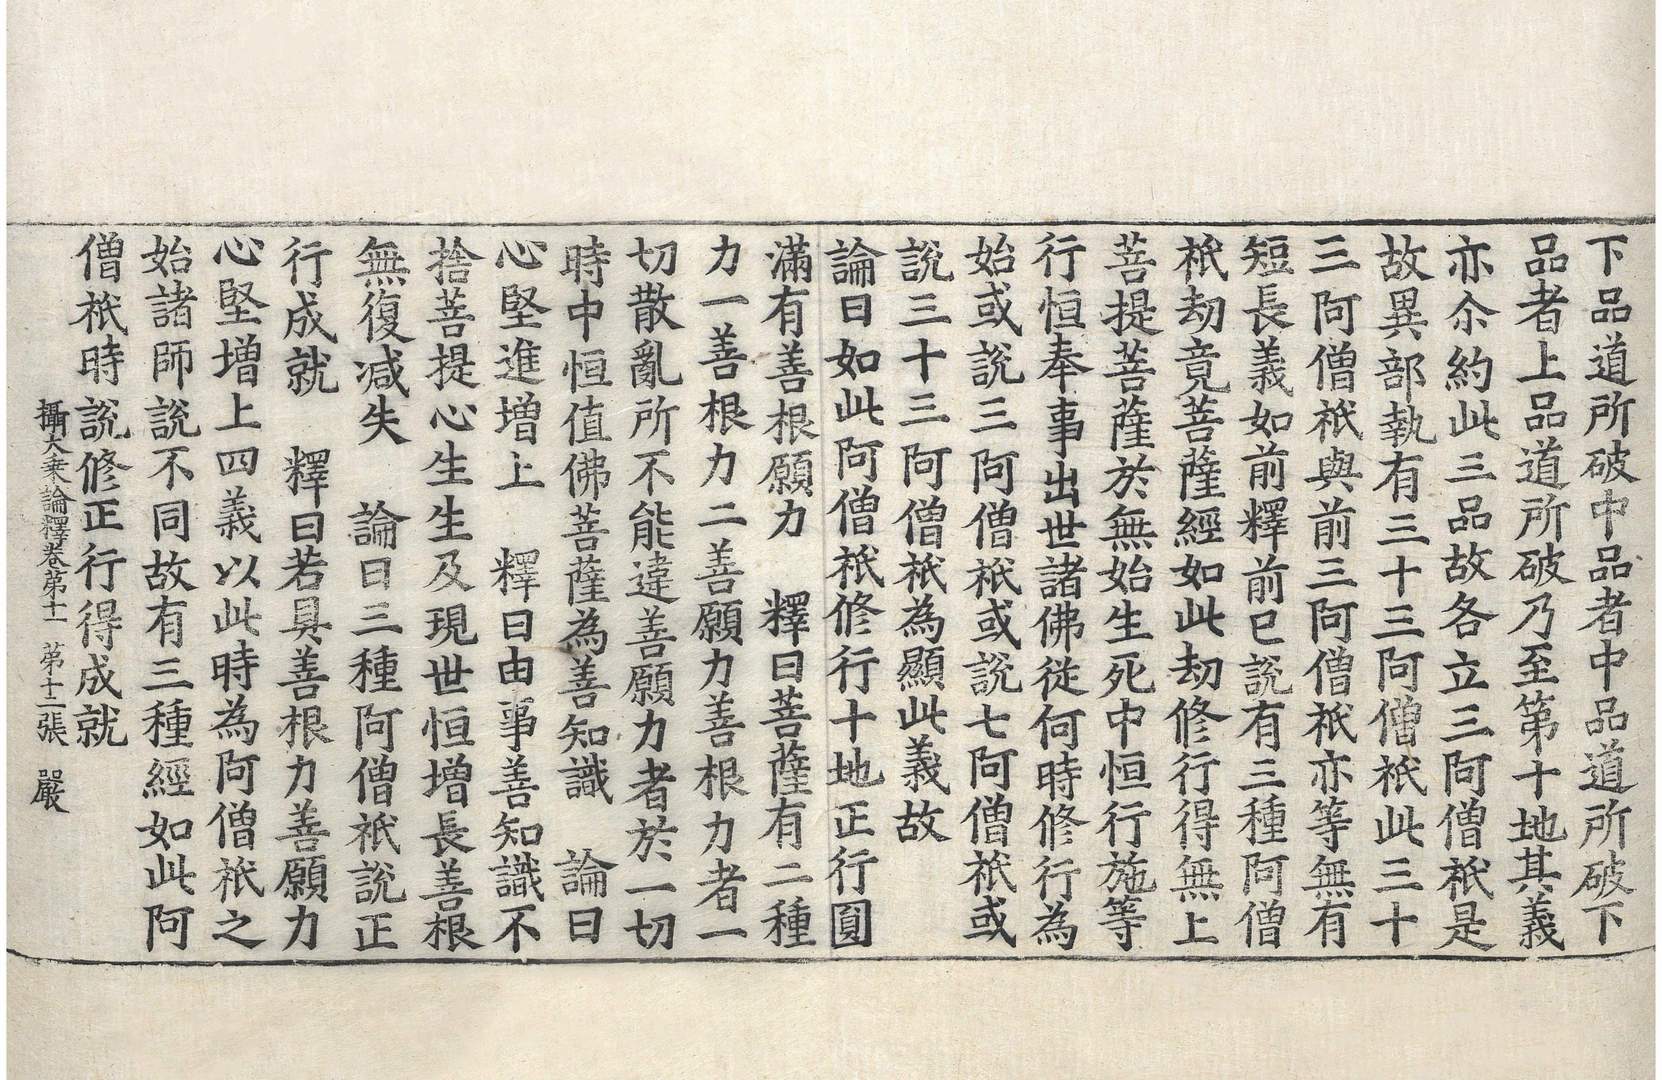 下品道所破中品者中品道所破下
品者上品道所破乃至第十地其義
亦尒約此三品故各立三阿僧祇是
故異部執有三十三阿僧祇此三十
三阿僧祇與前三阿僧祇亦等無有
短長義如前釋前已說有三種阿僧
祇劫竟菩薩經如此劫修行得無上
菩提菩薩於無始生死中恒行施等
行恒奉事出世諸佛從何時修行為
始或說三阿僧祇或說七阿僧祇或
說三十三阿僧祇為顯此義故
論曰如此阿僧祇修行十地正行圓
滿有善根願力　釋曰菩薩有二種
力一善根力二善願力善根力者一
切散亂所不能違善願力者於一切
時中恒值佛菩薩為善知識　論曰
心堅進增上　釋曰由事善知識不
捨菩提心生生及現世恒增長善根
無復減失　論曰三種阿僧祇說正
行成就　釋曰若具善根力善願力
心堅增上四義以此時為阿僧祇之
始諸師說不同故有三種經如此阿
僧祇時說修正行得成就
攝大乘論釋卷第十一　第十二張　嚴